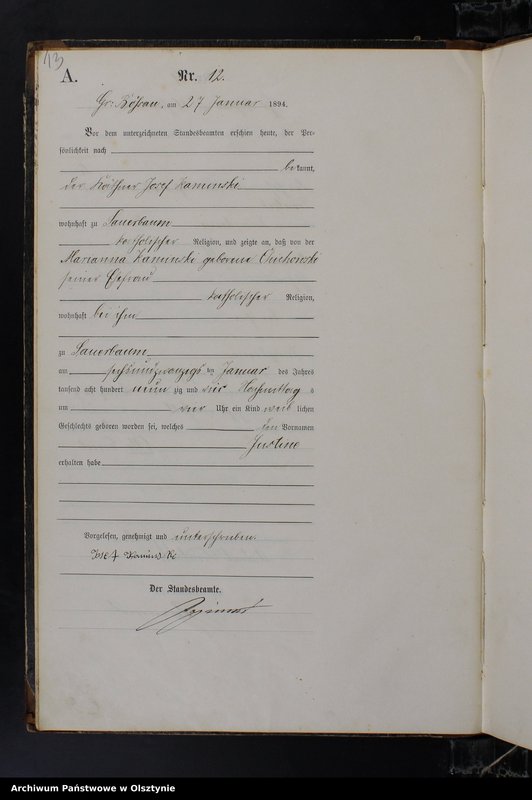 13
A.
Nr. 12.
Gr. Bößau, am 27 Januar 1894.
Vor dem unterzeichneten Standesbeamten erschien heute, der Per-
sönlichkeit nach
bekannt,
der Käthner Josef Kaminski
wohnhaft zu Sauerbaum
katholischer Religion, und zeigte an, daß von der
Marianna Kaminski geborene
seiner Ehefrau
katholischer Religion,
wohnhaft bei ihm
zu Sauerbaum
am sechsundzwanzigsten Januar des Jahres
tausend acht hundert neunzig und vier Nachmittags
um vier Uhr ein Kind weiblichen
Geschlechts geboren worden sei, welches den Vornamen
Justine
erhalten habe
Vorgelesen, genehmigt und unterschrieben.
Josef Kaminski
Der Standesbeamte.
Archiwum Państwowe w Olsztynie